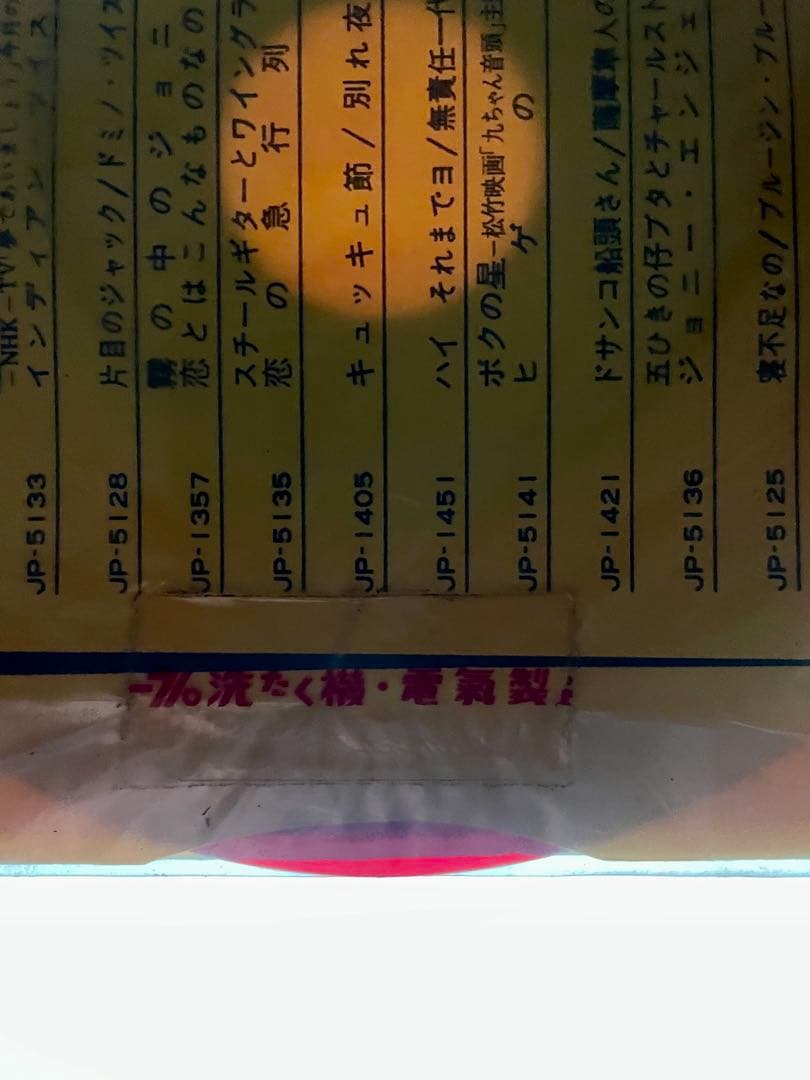 －NHK－TV「夢であいましょう」今月の
インディアン・アイス
JP-5133
片目のジャック/ドミノ・ツイス
JP-5128
霧の中のジョニ
恋とはこんなものなの
JP-1357
スチールギターとワイングラ
恋の急行列
JP-5135
キュッキュ節/別れ夜
JP-1405
ハイ それまでヨ/無責任一代
JP-1451
ボクの星－松竹映画「九ちゃん音頭」主
ヒゲの
JP-5141
ドサンコ船頭さん/薩摩隼人の
JP-1421
五ひきの仔ブタとチャールスト
ジョニー・エンジェ
JP-5136
寝不足なの/ブルージン・ブルー
JP-5125
洗たく機・電氣製